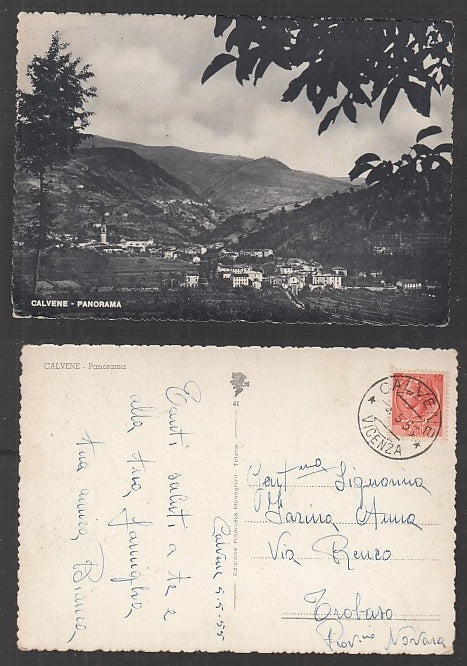 CALVENE - PANORAMA
CALVENE - Panorama
41
Tanti saluti a te e
alla tua famiglia
tua amica Bianca
Calvene 5-5-55
Edizione Riservata Meneghini - Thiene
CALVENE
VICENZA
Gent.ma Signorina
Farina Anna
Via Renzo
Trobaso
Prov. Novara